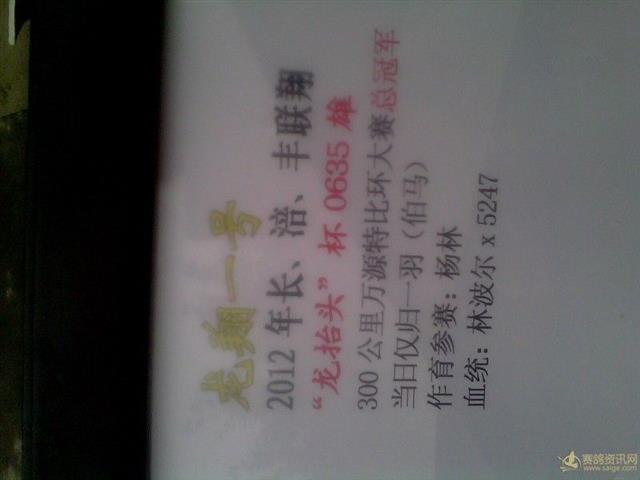 龙翔一号
2012 年长、涪、丰联翔
“龙抬头”杯 0635 雄
300 公里万源特比环大赛总冠军
当日仅归一羽（伯马）
作育参赛：杨林
血统：林波尔 x 5247
赛鸽资讯网
www.saige.com